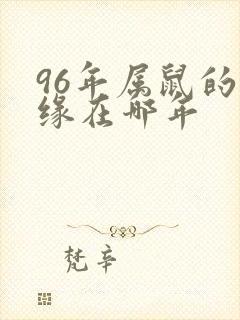 96年属鼠的
缘在哪年
梵辛